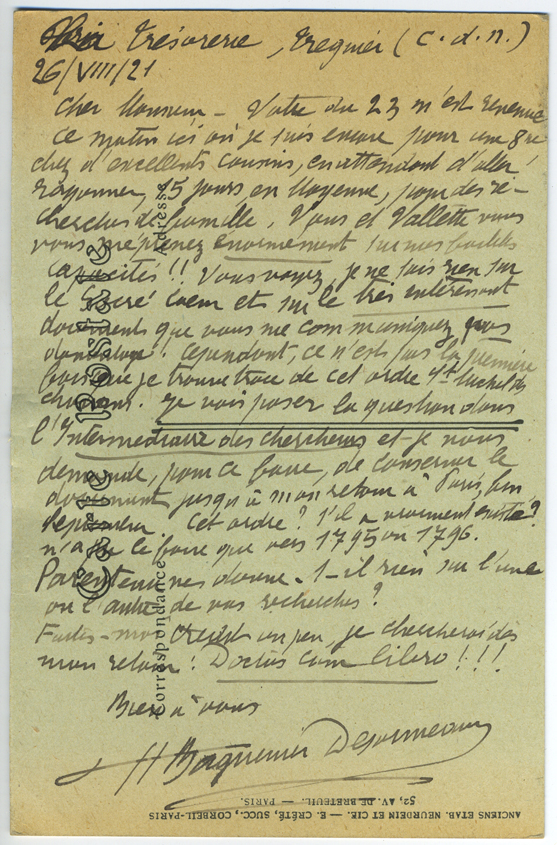 Trésorerie, Treguier (C. d. n.)
26/VIII/21
Cher Monsieur - Votre du 23 m'est revenue
ce matin ici où je suis encore pour une 8ne
chez d'excellents cousins, en attendant d'aller
rayonner, 15 jours en Mayenne, pour des re-
cherches de famille. Vous et Vallette vous
vous méprenez énormément sur mes faibles
capacités !! Vous voyez, je ne sais rien sur
le Sacré Coeur et sur le très intéressant
document que vous me communiquez
Cependant, ce n'est pas la première
fois que je trouve trace de cet ordre St Michel
Je vais poser la question dans
l'Intermédiaire des chercheurs et je vous
demande, pour ce faire, de conserver le
document jusqu'à mon retour à Paris, fin
septembre. Cet ordre ? S'il a vraiment existé ?
n'a pu le faire que vers 1795 ou 1796.
Parenteau ne donne-t-il rien sur l'une
ou l'autre de vos recherches ?
Faites-moi crédit un peu, je chercherai dès
mon retour ! Doctus cum libro !!!
Bien à vous
H Baguenier Desormeaux
Carte Postale
Correspondance
Adresse
ANCIENS ETAB. NEURDEIN ET CIE. — E. CRÉTÉ, SUCC., CORBEIL-PARIS
52, AV. DE BRETEUIL. — PARIS.